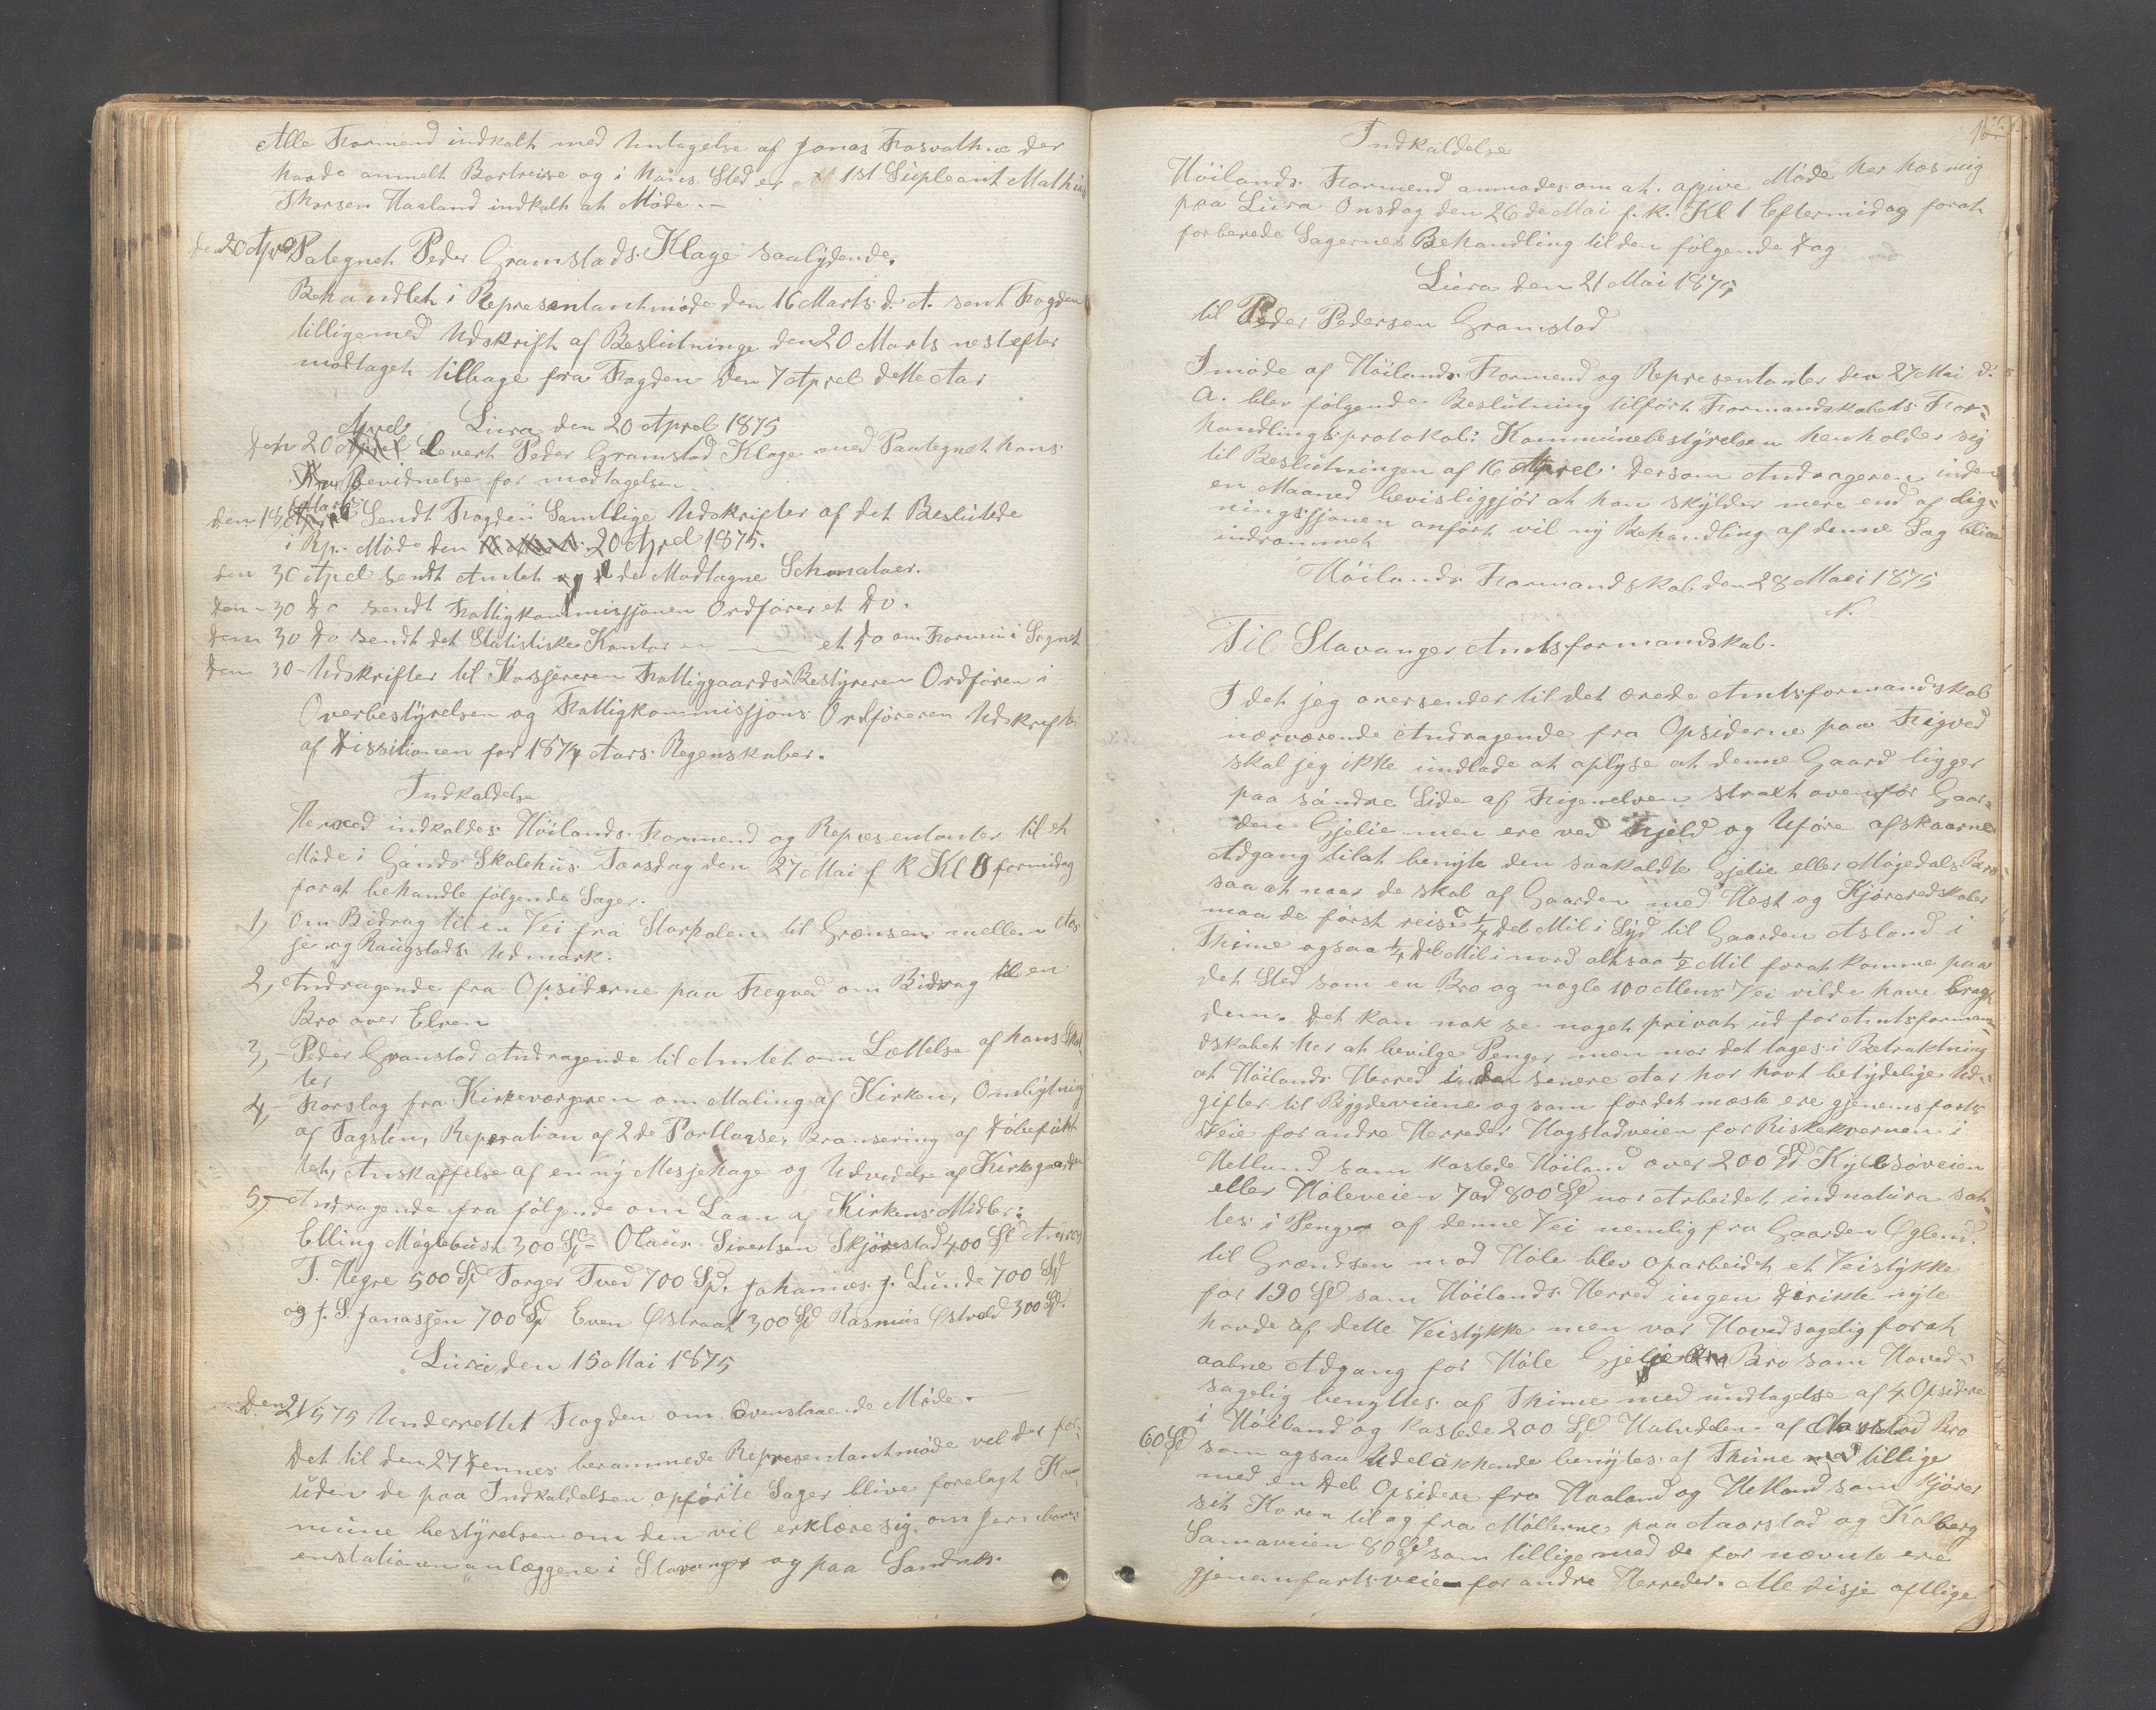 Alle Formend indkalt med Untagelse af Jonas Fosvatne der
havde anmelt Bortreise og i hans Sted er 1st Supleant Mathias
Thorsen Haaland indkalt at Møde.-
den 20 Apr Pategnet Peder Gramstads Klage saalydende.
Behandlet i Representantmøde den 16 Marts d. A. sent Fogden
tilligemed Udskrift af Beslutninge den 20 Marts nestefter
modtaget tilbage fra Fogden den 7 Aprel dette Aar
Lura den 20 Aprel 1875
den 20 Aprel Levert Peder Gramstad Klage med Paategnet hans
bevidnelse for modtagelsen.
den 18 Marts Sendt Fogden Samtlige Udskrifter af det Beslutede
i Rp. Møde den 20 Aprel 1875.
den 30 Apel sendt Amtet de Modtagne Schmataer.
den - 30 do sendt Fattigkommissjonen Ordfører et Do.
den 30 do sendt det Statistiske Kontor et do om Formin i Sognet
den 30 - Udskrifter til Kassereren Fattiggaards Bestyreren Ordføren i
Overbestyrelsen og Fattigkommissjons Ordføreren Udskrift
af Dissitionen for 1874 Aars Regenskaber.
Indkaldelse
Herved indkaldes Höilands Formend og Representanter til et
Møde i Gands Skolehus Torsdag den 27 Mai f k Kl 8 formidag
forat behandle følgende Sager.
1, Om Bidrag til en Vei fra Storpolen til Grænsen mellem
og Raugstads Udmark.
2, Andragende fra Opsiderne paa Fregved om Bidrag til en
Bro over Elven
3, - Peder Gramstad Andragende til Amtet om Lættelse af hans Skat
ter
4, - Forslag fra Kirkeværgeren om Maling af Kirken, Ombytning
af Tagsten, Reperation af 2de Portlaase, Bransering af Döbefadt
tet, Anskaffelse af en ny Messehage og Udvidelse af Kirkegaarden
5, Andragende fra følgende om Laan af Kirkens Midler:
Elling Møglebust 300 Sp - Olaus Sivertsen Skjørestad 400 Sp
T. Hegre 500 Sp Torger Tved 700 Sp. Johannes J. Lunde 700 Sp
og J. S. Jonassen 700 Sp Even Østraat 300 Sp Rasmus Østvold 300 Sp.
Lura den 15 Mai 1875
Den 21/5 75 Underrettet Fogden om Ovenstaaende Møde.
Det til den 27 Dennes berammede Representantmøde vil der for
uden de paa Indkaldelsen opførte Sager blive forelagt Kom
mune bestyrelsen om den vil erklære sig om Jernban
enstationen anlæggene i Stavanger og paa Sandnes.
Indkaldelse
Höilands Formend anmodes om at afgive Møde her hos mig
paa Lura Onsdag den 26de Mai f. k. Kl 1 Eftermidag forat
forberede Sagernes Behandling til den følgende Dag
Lura den 21 Mai 1875
til Peder Pedersen Gramstad
I møde af Höilands Formend og Representanter den 27 Mai d.
A. blev følgende Beslutning tilført Formandskabets For-
handlingsprotokol: Kommunebestyrelsen henholder sig
til Beslutningen af 16 Aprel. Dersom Andrageren inden
en Maaned bevisliggjør at han skylder mere end af lig-
ningssjonen anført vil ny Behandling af denne Sag blive
indrømmet
Höilands Formandskab den 28 Mai 1875
N.
Til Stavanger Amtsformandskab.
I det jeg oversender til det ærede Amtsformandskab
nærværende Andragende fra Opsiderne paa Frigved
skal jeg ikke undlade at oplyse at denne Gaard ligger
paa söndre Side af Figenelven stralt ovenfor Gaar-
den Gjelie men ere ved Fjeld og Uføre afskaarne
Adgang tilat benyte den saakaldte Gjelie eller Møgedals Bro
saa at naar de skal af Gaarden med Hest og Kjøreredskaber
maa de först reise 1/4 Del Mil i Syd til Gaarden Asland i
Thime ogsaa 1/4 Del Mil i nord altsaa 1/2 Mil forat komme paa
det Sted som en Bro og nogle 100 Alens Vei vilde have bragt
dem. Det kan nok se noget privat ud for Amtsforman
dskabet her at bevilge Penger men nor det tages i Betraktning
at Höilands Herred i den senere Aar har havt betydelige Ud-
gifter til Bygdeveiene og som for det mæste ere gjenemfarts
Veie for andre Herreder Hogstadveien for Riskekvernen i
Hetland som kostede Höiland over 200 Sp Kylesöveien
eller Höleveien 7 ad 800 Sp nor Arbeidet indnatura sat
tes i Penge af denne Vei nemlig fra Gaarden Øglend
til Grændsen mod Höle blev oparbeidet et Veistykke
for 190 Sp som Höilands Herred ingen dirikte nyte
havde af dette Veistykke men var Hovedsagelig forat
aabne Adgang for Höle Gjelie Bro som Hoved-
sagelig benyttes af Thime med undtagelse af 4 Opsidere
i Höiland og kostede 200 Sp Halvdelen af Aarstad Bro
60 Sp som ogsaa benytes af Thime tillige
med en Del Opsidere fra Haaland og Hetland som kjører
sit Koren til og fra Møllerne paa Aarstad og Kalberg
Samaveien 80 Sp som tilligemed de før nævnte ere
gjenemfartsveie for andre Herreder. Alle disse aflige